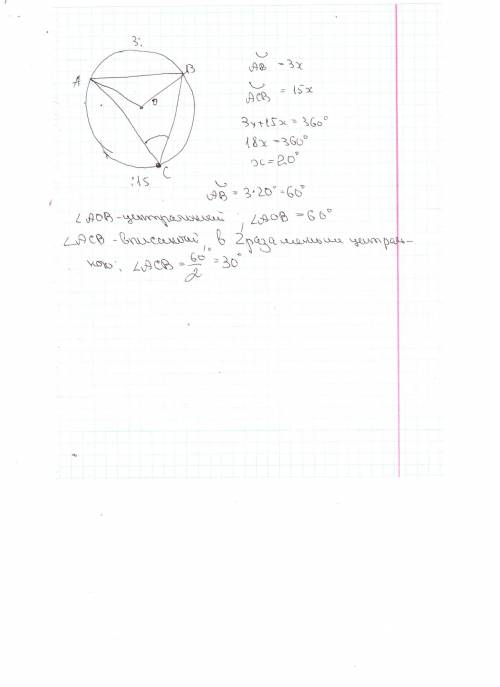 3:
A
B
O
C
:15
◡AB = 3x
◡ACB = 15x
3x+15x=360°
18x=360°
x=20°
◡AB = 3·20°=60°
∠AOB-центральный; ∠AOB = 60°
∠ACB - вписаный, в 2 раза меньше централь-
ного; ∠ACB = 60°/2 = 30°